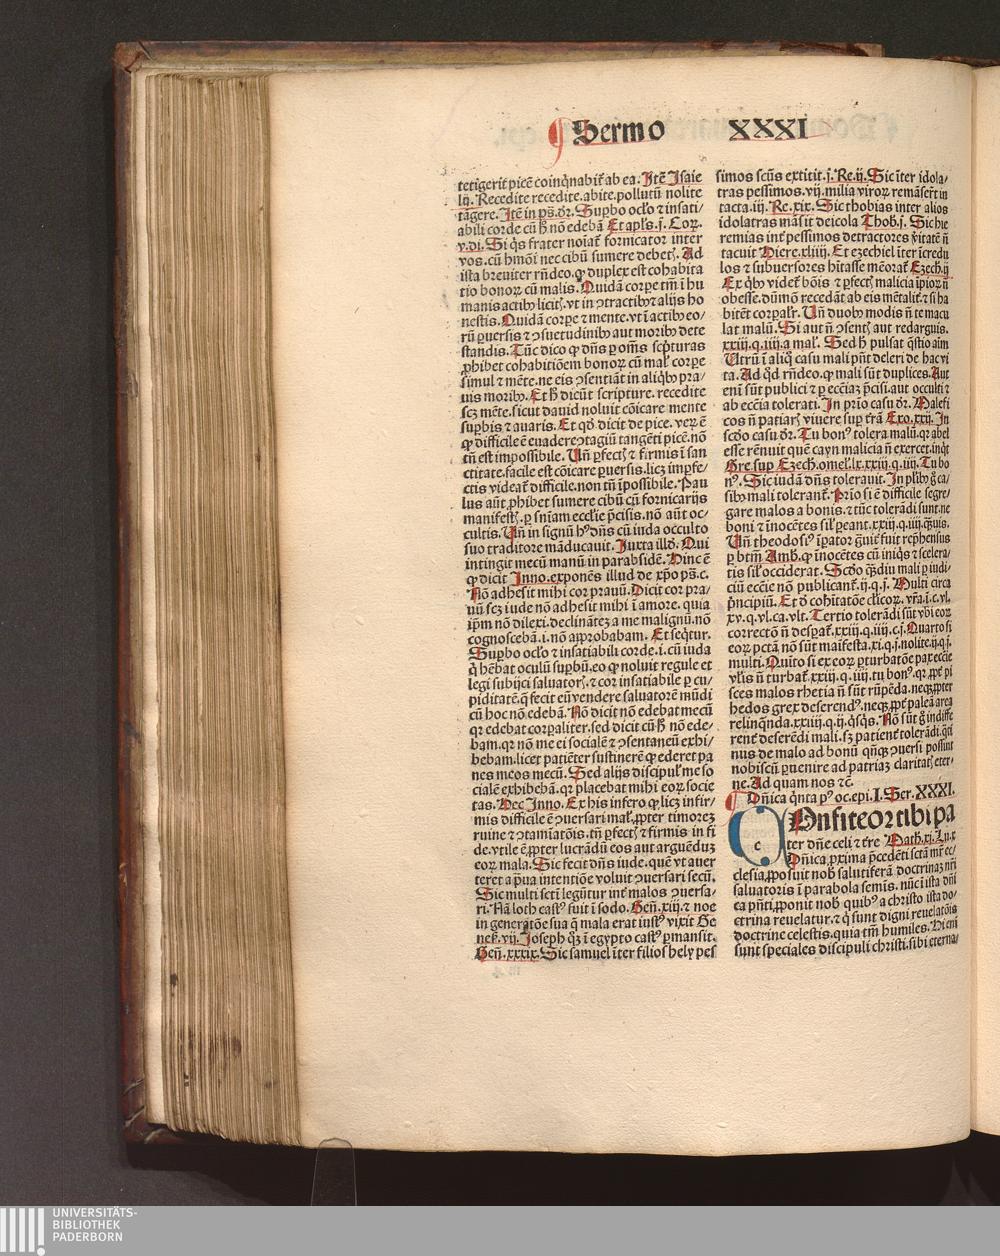 Sermo XXXI
tetigerit picē coinq̄nabit̄ ab ea. Itē Isaie
lij. Recedite recedite. abite. pollutū nolite
tāgere. Itē in ps. dr̄. Supbo oc̄lo ⁊ insati/
abili corde cū h̄ nō edebā Et apl's. j. Corꝝ.
v. di. Si q̄s frater noīat̄ fornicator inter
vos. cū hmōi nec cibū sumere debetꝭ. Ad
ista breuiter rn̄deo. ꝙ duplex est cohabita
tio bonoꝝ cū malis. Quidā corpe tm̄ ī hu
manis actibꝰ licitꝭ. vt in ꝯtractibꝰ ⁊ alijs ho
nestis. Quidā corpe ⁊ mente. vt ī actibꝰ eo/
rū puersis ⁊ ꝯsuetudinibꝰ aut moribꝰ dete
standis. Tūc dico ꝙ dn̄s p om̄s sc̄pturas
ꝓhibet cohabitatiōem bonoꝝ cū mal' corpe
simul ⁊ mēte. ne eis ꝯsentiāt in aliq̄bꝰ pra/
uis moribꝰ. Et h̄ dicūt scripture. recedite
scꝫ mēte. sicut dauid noluit cōicare mente
supbis ⁊ auaris. Et qd̄ dicit de pice. veꝝ ē
ꝙ difficile ē euadere ꝯtagiū tangēti picē. nō
tn̄ est impossibile. Un̄ pfectꝭ ⁊ firmis ī san
ctitate. facile est cōicare puersis. licꝫ impfe/
ctis videat̄ difficile. non tn̄ īpossibile. Pau
lus aūt ꝓhibet sumere cibū cū fornicarijs
manifestꝭ. p sn̄iam eccl'ie p̄cisis. nō aūt oc/
cultis. Un̄ in signū hꝰ dn̄s cū iuda occulto
suo traditore māducauit. Iuxta illd̄. Qui
intingit mecū manū in parabsidē. Hinc ē
ꝙ dicit Inno. exponēs illud de xp̄o ps. c.
Nō adhesit mihi cor prauū. Dicit cor pra/
uū scꝫ iude nō adhesit mihi ī amore. quia
ip̄m nō dilexi. declināteꝫ a me malignū. nō
cognoscebā. i. nō approbabam. Et seq̄tur.
Supbo oc̄lo ⁊ insatiabili corde. i. cū iuda
q̄ hēbat oculū supbū. eo ꝙ noluit regule et
legi subijci saluatorꝭ. ⁊ cor insatiabile p cu/
piditatē. q̄ fecit eū vendere saluatorē mūdi
cū hoc nō edebā. Nō dicit nō edebat mecū
qr̄ edebat corpaliter. sed dicit cū h̄ nō ede/
bam. qr̄ nō me ei socialē ⁊ ꝯsentaneū exhi/
bebam. licet patiēter sustinerē ꝙ ederet pa
nes meos mecū. Sed alijs discipul' me so
cialē exhibebā. qr̄ placebat mihi eoꝝ socie
tas. Hec Inno. Ex his infero ꝙ licꝫ infir/
mis difficile ē ꝯuersari mal'. ꝓpter timoreꝫ
ruine ⁊ ꝯtamīatōis. tn̄ pfectꝭ ⁊ firmis in fi
de. vtile ē. ꝓpter lucrādū eos aut arguēduꝫ
eoꝝ mala. Sic fecit dn̄s iude. quē vt auer
teret a praua intentiōe voluit ꝯuersari secū.
Sic multi sctī legūtur int̄ malos ꝯuersa/
ri. Nā loth castꝰ fuit ī sodo. Gen̄. xiij. ⁊ noe
in generatōe sua q̄ mala erat iustꝰ vixit Ge
nes̄. vij. Ioseph q̄ꝫ ī egypto castꝰ pmansit.
Gen̄. xxxix. Sic samuel īter filios hely pes
simos scūs extitit. j. Re. ij. Sic īter idola/
tras pessimos. vij. milia viroꝝ remāser̄t in
tacta. iij. Re. xix. Sic thobias inter alios
idolatras māsit deicola Thob. j. Sic hie
remias int̄ pessimos detractores v̄itatē n̄
tacuit Hiere. xliiij. Et ezechiel īter īcredu
los ⁊ subuersores hītasse mēorat̄ Ezech. ij
Ex q̄bꝰ videt̄ bōis ⁊ pfectꝭ malicia īpioꝝ n̄
obesse. dūmō recedāt ab eis mētalit̄. ⁊ si ha
bitēt corpalr̄. Un̄ duobꝰ modis n̄ te macu
lat malū. Si aut n̄ ꝯsentꝭ aut redarguis.
xxiij. q. iiij. a mal'. Sed h̄ pulsat q̄stio aīm
Utrū ī aliq̄ casu mali pn̄t deleri de hac vi
ta. Ad qd̄ rn̄deo. ꝙ mali sūt duplices. Aut
enī sūt publici ⁊ p ecc̄iaꝫ p̄cisi. aut occulti ⁊
ab ecc̄ia tolerati. In pr̄io casu dr̄. Malefi
cos n̄ patiarꝭ viuere sup tr̄a Exo. xxij. In
scdo casu dr̄. Tu bonꝰ tolera malū. qr̄ abel
esse rēnuit quē cayn malicia n̄ exercet. inq̄t
Gre. sup Ezech. omel'. ix. xxiij. q. iiij. Tu bo
nꝰ. Sic iudā dn̄s tolerauit. In pl'ibꝰ g̊ ca/
sibꝰ mali tolerant̄. Pr̄io si ē difficile segre/
gare malos a bonis. ⁊ tūc tolerādi sunt. ne
boni ⁊ inocētes sil' peant. xxiij. q. iiij. q̄uis.
Un̄ theodosiꝰ īpator g̊uit̄ fuit rep̄hensus
p btm̄ Amb. ꝙ inocētes cū iniq̄s ⁊ scelera/
tis sil' occiderat. Scdo q̄ꝫdiu mali p iudi/
ciū ecc̄ie nō publicant̄. ij. q. j. Multi circa
p̄ncipiū. Et d̓ cohītatōe cl'icoꝝ. vr̄a. j. c. vl.
xv. q. vl. ca. vlt. Tertio tolerādi sūt vbi eoꝝ
correctō n̄ despat̄. xxiij. q. iiij. c. j. Quarto si
eoꝝ pctā nō sūt maīfesta. xi. q. j. nolite. ij. q. j.
multi. Quito si ex eoꝝ pturbatōe pax ecc̄ie
vl'is n̄ turbat̄. xxiij. q. iiij. tu bonꝰ. qr̄ ꝓpt̄ pi
sces malos rhetia n̄ sūt rūpēda. neqꝫ ꝓpter
hedos grex deserendꝰ. neqꝫ ꝓpt̄ paleā area
relinq̄nda. xxiiij. q. ij. q̄sq̄s. Nō sūt g̊ indiffe
rent̄ deserēdi mali. sꝫ patient̄ tolerādi. q̄ti
nus de malo ad bonū qn̄qꝫ ꝯuersi possint
nobiscū puenire ad patriaꝫ claritatꝭ eter/
ne. Ad quam nos ⁊c̄.
Dn̄ica q̄nta pꝰ oc. epi. I. Ser. XXXI.
COnfiteor tibi pa
ter dn̄e celi ⁊ tr̄e Math. xj. Lu. x
Dn̄ica. ꝓxima p̄cedēti sctā mr̄ ec/
clesia. ꝓposuit nob̄ salutiferā doctrinaꝫ nr̄i
saluatoris ī parabola semīs. nūc ī ista dn̄i
ca pn̄ti. ꝓponit nob̄ quibꝰ a christo ista do/
ctrina reuelatur. ⁊ q̄ sunt digni reuelatōis
doctrine celestis. quia tm̄ humiles. Hi eni
sunt speciales discipuli christi. sibi eterna/
UNIVERSITÄTS-
BIBLIOTHEK
PADERBORN